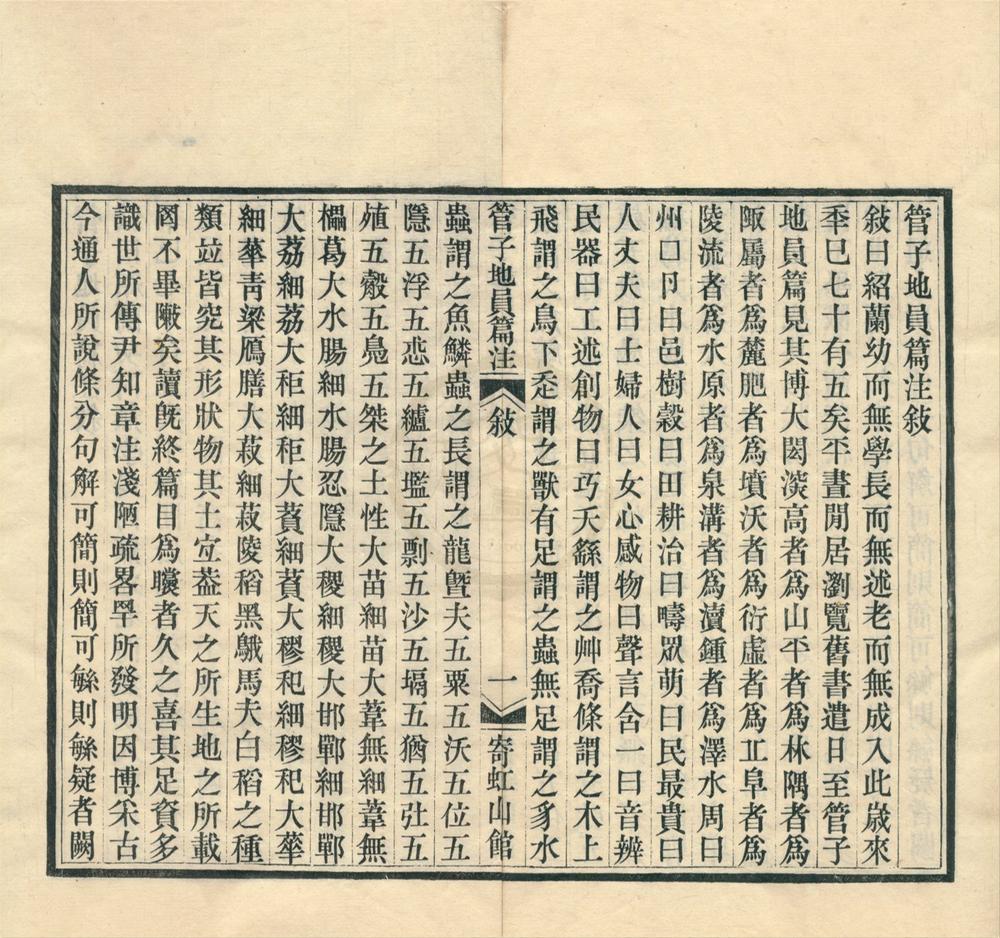 管子地員篇注敍
敍曰紹蘭幼而無學長而無述老而無成入此歲來
季巳七十有五矣平晝閒居瀏覽舊書遣日至管子
地員篇見其博大閎㴱高者爲山平者爲林隅者爲
陬屬者爲麓脃者爲墳沃者爲衍虛者爲丠阜者爲
陵流者爲水原者爲泉溝者爲瀆鍾者爲澤水周曰
州囗卪曰邑樹穀曰田耕治曰疇眾萌曰民最貴曰
人丈夫曰士婦人曰女心感物曰聲言含一曰音辨
民器曰工述創物曰巧夭繇謂之艸喬條謂之木上
飛謂之鳥下走謂之獸有足謂之蟲無足謂之豸水
管子地員篇注 敍 一 寄虹山館
蟲謂之魚鱗蟲之長謂之龍曁夫五粟五沃五位五
隱五浮五恋五纑五壏五剽五沙五塥五猶五壯五
殖五觳五鳧五桀之土性大苗細苗大葦無細葦無
櫑葛大水腸細水腸忍隱大稷細稷大邯鄲細邯鄲
大荔細荔大秬細秬大蕡細蕡大穋秜細穋秜大蕐
細蕐靑粱鴈膳大菽細菽陵稻黑鵝馬夫白稻之種
類竝皆究其形狀物其土宐葢天之所生地之所載
罔不畢㪚矣讀旣終篇目爲曠者久之喜其足資多
識世所傳尹知章注淺陋疏畧罕所發明因博采古
今通人所說條分句解可簡則簡可緐則緐疑者闕